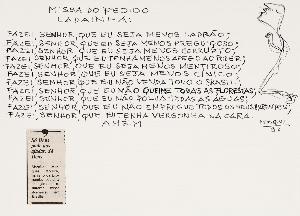 MISSA DO PEDIDO
LADAINHA:
FAZEI, SENHOR, QUE EU SEJA MENOS LADRÃO;
FAZEI, SENHOR, QUE EU SEJA MENOS PREGUIÇOSO;
FAZEI, SENHOR, QUE EU SEJA MENOS CORRUPTO;
FAZEI, SENHOR, QUE EU TENHA MENOS APEGO AO PODER;
FAZEI, SENHOR, QUE EU SEJA MENOS MENTIROSO;
FAZEI, SENHOR, QUE EU SEJA MENOS CÍNICO;
FAZEI, SENHOR, QUE EU NÃO VENDA TODO O BRASIL;
FAZEI, SENHOR, QUE EU NÃO QUEIME TODAS AS FLORESTAS;
FAZEI, SENHOR, QUE EU NÃO POLUA TODAS AS ÁGUAS;
FAZEI, SENHOR, QUE EU NÃO EMPREGUE TODOS OS MEUS PARENTES;
FAZEI, SENHOR, QUE EU TENHA VERGONHA NA CARA
AMÉM